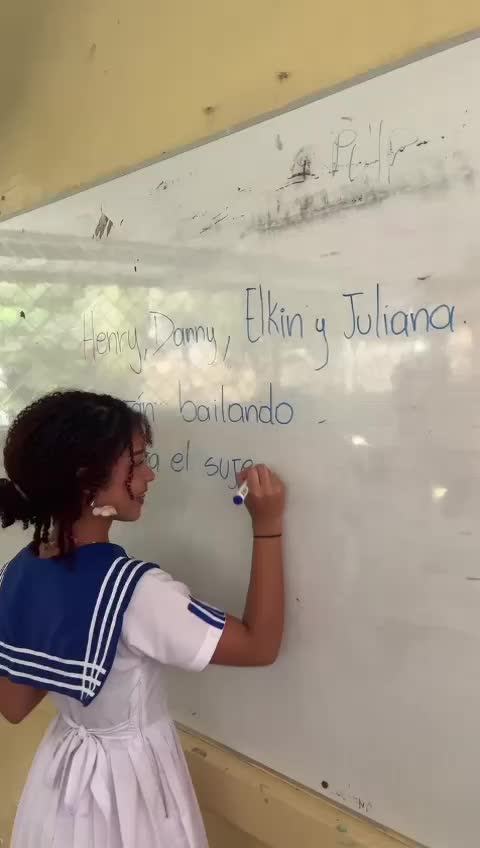 Henry, Danny, Elkin y Juliana.
bailando
el suje